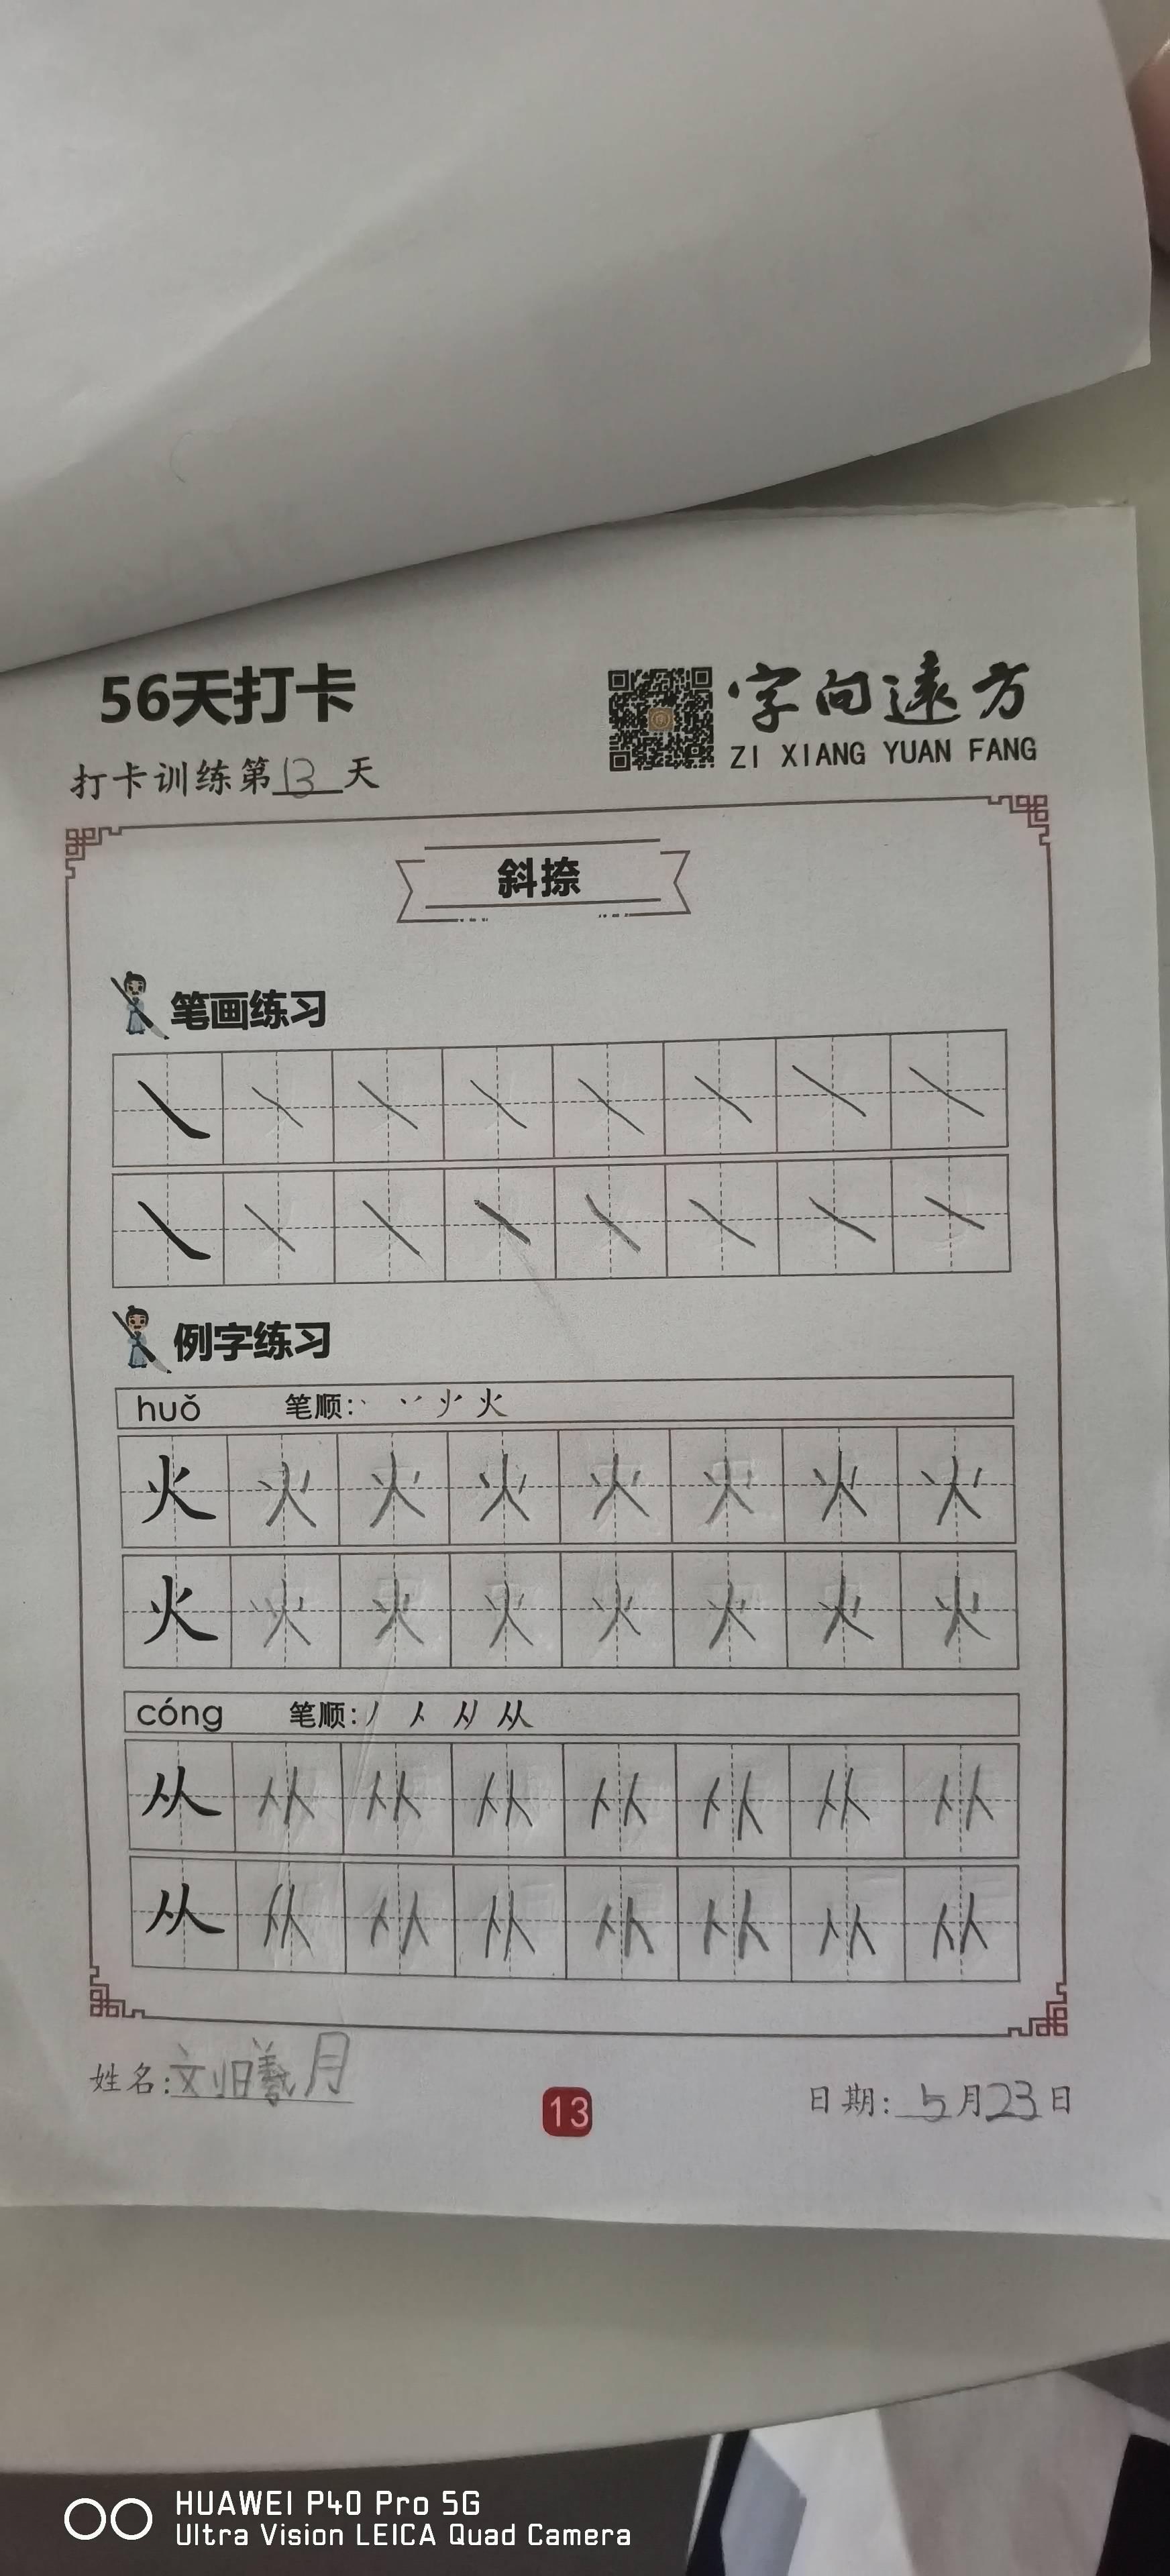 56天打卡
字向遠方
ZI XIANG YUAN FANG
打卡训练第13天
斜捺
笔画练习
㇏ ㇏ ㇏ ㇏ ㇏ ㇏ ㇏ ㇏
㇏ ㇏ ㇏ ㇏ ㇏ ㇏ ㇏ ㇏
例字练习
huǒ 笔顺: 火
火 火 火 火 火 火 火 火
火 火 火 火 火 火 火 火
cóng 笔顺: 丿 人 从
从 从 从 从 从 从 从 从
从 从 从 从 从 从 从 从
姓名:刘曦月
13
日期:5月23日
HUAWEI P40 Pro 5G
Ultra Vision LEICA Quad Camera